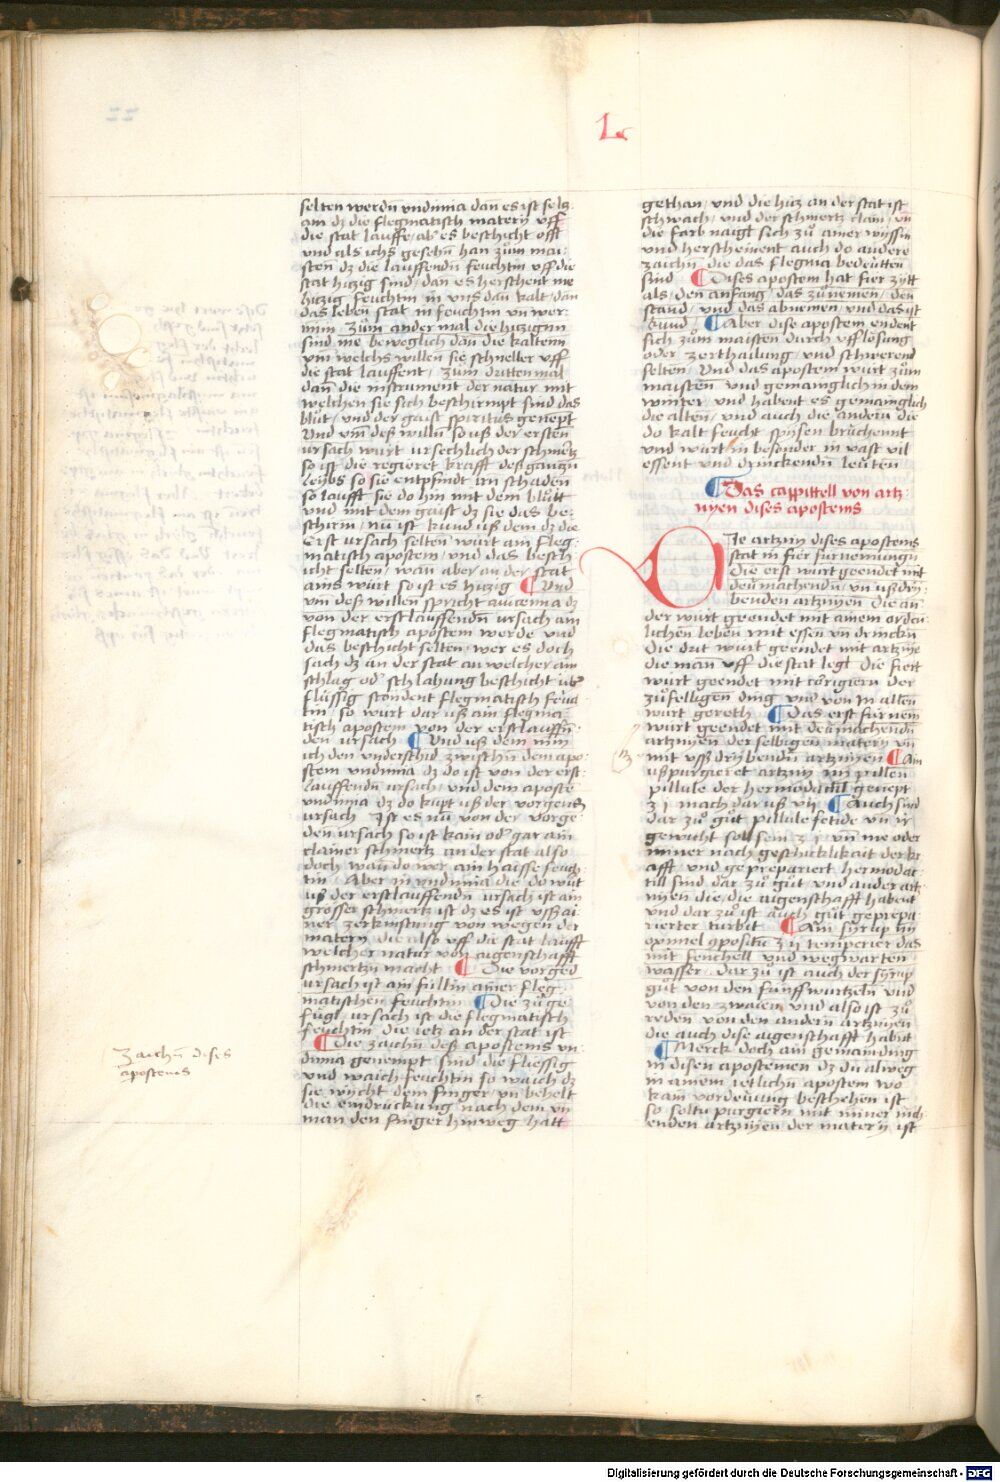 L
selten werdn̄ vndimia dan̄ es ist selz
am dz die flegmatisch matery vff
die stat lauffe / ab͛ es beschicht offt
vnd als ichs gesehn̄ han zům mai¬
sten̄ dz die lauffendn̄ feuchtin vff die
stat hiczig sind / dan es herschent me
hiczig feuchtin in vns dan̄ kalt / dan
das leben stat in feuchtin vn̄ wer¬
min Zům ander mal die hiczigñ
sind me beweglich dan̄ die kaltenn
vm̄ welchs willen sie schneller vff
die stat lauffent / Zum dritten mal
dan̄ die instrument der natur mit
welchen sie sich beschirmpt sind das
blůt / vnd der gaist spiritus genēpt
Vnd vm̄ deß willn̄ so uß der ersten̄
ursach wurt ursechlich der schmertz
so ist die regieret krafft deß ganczn̄
leybs so sie entpfindt irn̄ schaden
so laufft sie do hin mit dem blůtt
vnd mit dem gaist dz sie das be¬
schirm / nu ist kund uß dem dz die
Erst ursach selten̄ würt am fleg¬
matisch apostem / vnd das besch¬
icht selten / wan aber an der stat
ains würt so ist es hiczig ¶ Vnd
vm̄ deß willen̄ spricht auicenna dz
von der erst lauffendn̄ ursach ain
flegmatisch apostem werde vnd
das beschicht selten / wer es doch
sach dz an der stat an welcher ain
schlag od͛ schlahung beschicht üb͛
flüssig stondent flegmatisch feuch
tin / so wurt dar uß ain flegma¬
tisch apostem von der erst lauffn̄¬
den ursach ¶ Vnd uß dem nim
ich den underschid zwischn̄ dem apo¬
stem vndimia dz do ist von der erst
lauffendn̄ ursach / vnd dem aposte
vndimia dz do kūpt uß der vorgendn̄
ursach Ist es nu von der vorge¬
den ursach so ist kain od͛ gar ain
clainer schmertz an der stat also
doch wan̄ do wer ain haisse feuch¬
tin / Aber in vndimia die do wurt
uß der erst lauffendn̄ ursach ist ain
grosser schmertz ist dz es ist vsß ai¬
ner zerknistung von wegen der
matern̄ die also vff die stat laufft
welcher natur von aigenschafft
schmertzn̄ macht ¶ Die vorged
ursach ist ain füllin ainer fleg¬
matischen feuchtin ¶ Die zů ge¬
fügt ursach ist die flegmatisch
feuchtin die ietz an der stat ist
¶ Die zaichn̄ deß apostems vn¬
dimia genempt sind die fliessig
vnd waich feuchtin so waich dz
sie wycht dem finger / vn̄ behelt
die eindruckung nach dem vn̄
man den finger hinweg hatt
Zaichn̄ dises
apostems
gethan / vnd die hicz an der stat ist
schwach / vnd der schmertz clain / vn̄
die farb naigt sich zů ainer wyssin
vnd herscheinent auch do andere
zaichn̄ die das flegma bedeutten̄
sind ¶ Dises apostem hat fier zytt
als / den anfang / das zůnemen / den
stand / vnd das abnemen / vnd das ist
kund ¶ Aber dise apostem endent
sich zům maisten durch vfflösung
oder zerthailung vnd schwerend
selten / Vnd das apostem wurt zům
maisten̄ vnd gemainglich in dem
winter / vnd habent es gemainglich
die alten / vnd auch die andern̄ die
do kalt feucht spysen brüchennt
vnd wurt in besonder in vast vil
essent vnd drinckendn̄ leuten
¶ Das cappittell von artz¬
nyen dises apostems
Die artznÿ dises apostems
stat in fier furnemungn̄
die erst wurt geendet mit
deumachendn̄ / vn̄ ußdry¬
benden artznÿen Die an¬
der wurt geendet mit ainem orden¬
lichen leben mit essen vn̄ drinckn̄
Die drit wurt geendet mit artznÿe
die man vff die stat legt Die fiert
wurt geendet mit corigiern der
zůfelligen ding vnd von in allen̄
wurt gereth ¶ Das erst furnem̄
wurt geendet mit deumachendn̄
artznÿen der selbigen matern̄ vn̄
mit vß drybendn̄ artznÿen ¶ Ain
ußpurgieret artznÿ im pillen
pillule der hermodactil genēpt
ʒ j mach dar uß vij ¶ Auch sind
dar zů gůt pillule fetide vn̄ ir
gewicht soll sein ʒ j vn̄ me oder
miner nach geschicklikait der kr
afft / vnd geprepariert hermodac¬
till sind dar zů gůt / vnd ander art
nÿen die / die aigenschafft habent
vnd dar zů ist auch gůt geprepa¬
rierter turbit ¶ Ain syrup im̄
oximel ꝯpositū ʒ ij temperier das
mit fenchell vnd wegwarten
wasser / Dar zů ist auch der syrup
gůt von den fünff wurtzeln vnd
von den zwaien vnd also ist zů
reden von den andern artznÿen
die auch dise aigenschafft habent
¶ Merck doch ain gemain ding
in disen apostemen dz du alweg
in ainem ietlichn̄ apostem wo
kain vordeuung beschehen ist
so soltu purgiern mit miner nich
enden artznÿen der matery ist